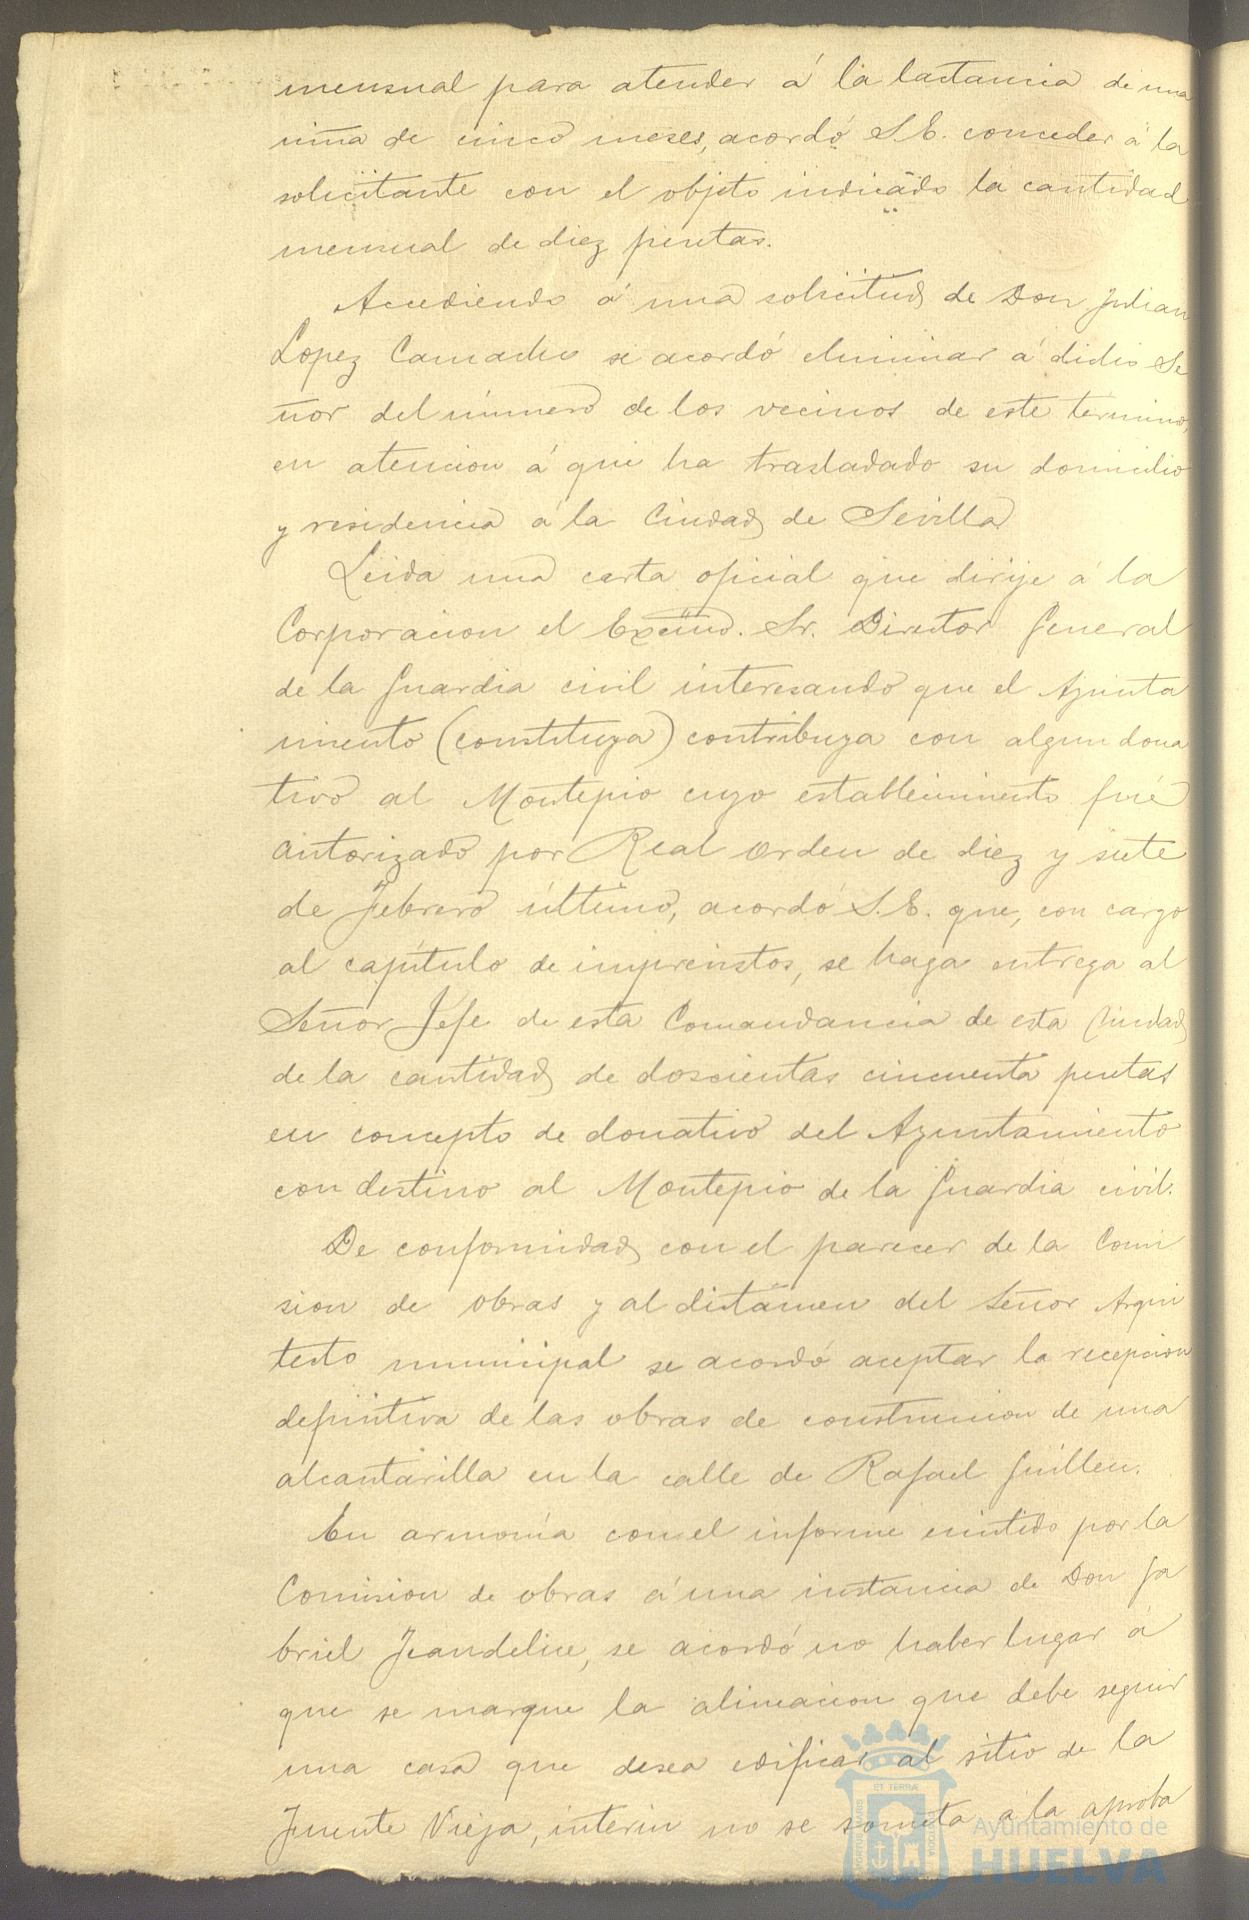 mensual para atender á la lactancia de una
niña de cinco meses, acordó S.E. conceder á la
solicitante con el objeto indicado la cantidad
mensual de diez pesetas.
Accediendo á una solicitud de Don Julian
Lopez Camacho se acordó eliminar á dicho Se
ñor del número de los vecinos de este término,
en atencion á que ha trasladado su domicilio
y residencia á la Ciudad de Sevilla.
Leida una carta oficial que dirije á la
Corporacion el Excmo. Sr. Director General
de la Guardia civil interesando que el Ayunta
miento (constituya) contribuya con algun dona
tivo al Montepio cuyo establecimiento fué
autorizado por Real orden de diez y siete
de Febrero último, acordó S.E. que, con cargo
al capítulo de imprevistos, se haga entrega al
Señor Jefe de esta Comandancia de esta Ciudad
de la cantidad de doscientas cincuenta pesetas
en concepto de donativo del Ayuntamiento
con destino al Montepio de la Guardia civil.
De conformidad con el parecer de la Comi
sion de obras y al dictámen del Señor Arqui
tecto municipal se acordó aceptar la recepcion
definitiva de las obras de construccion de una
alcantarilla en la calle de Rafael Guillen.
En armonía con el informe emitido por la
Comision de obras á una instancia de Don Ga
briel Jeandelice, se acordó no haber lugar á
que se marque la alineacion que debe seguir
una casa que desea edificar al sitio de la
Fuente Vieja, interin no se someta á la aproba
Ayuntamiento de
HUELVA